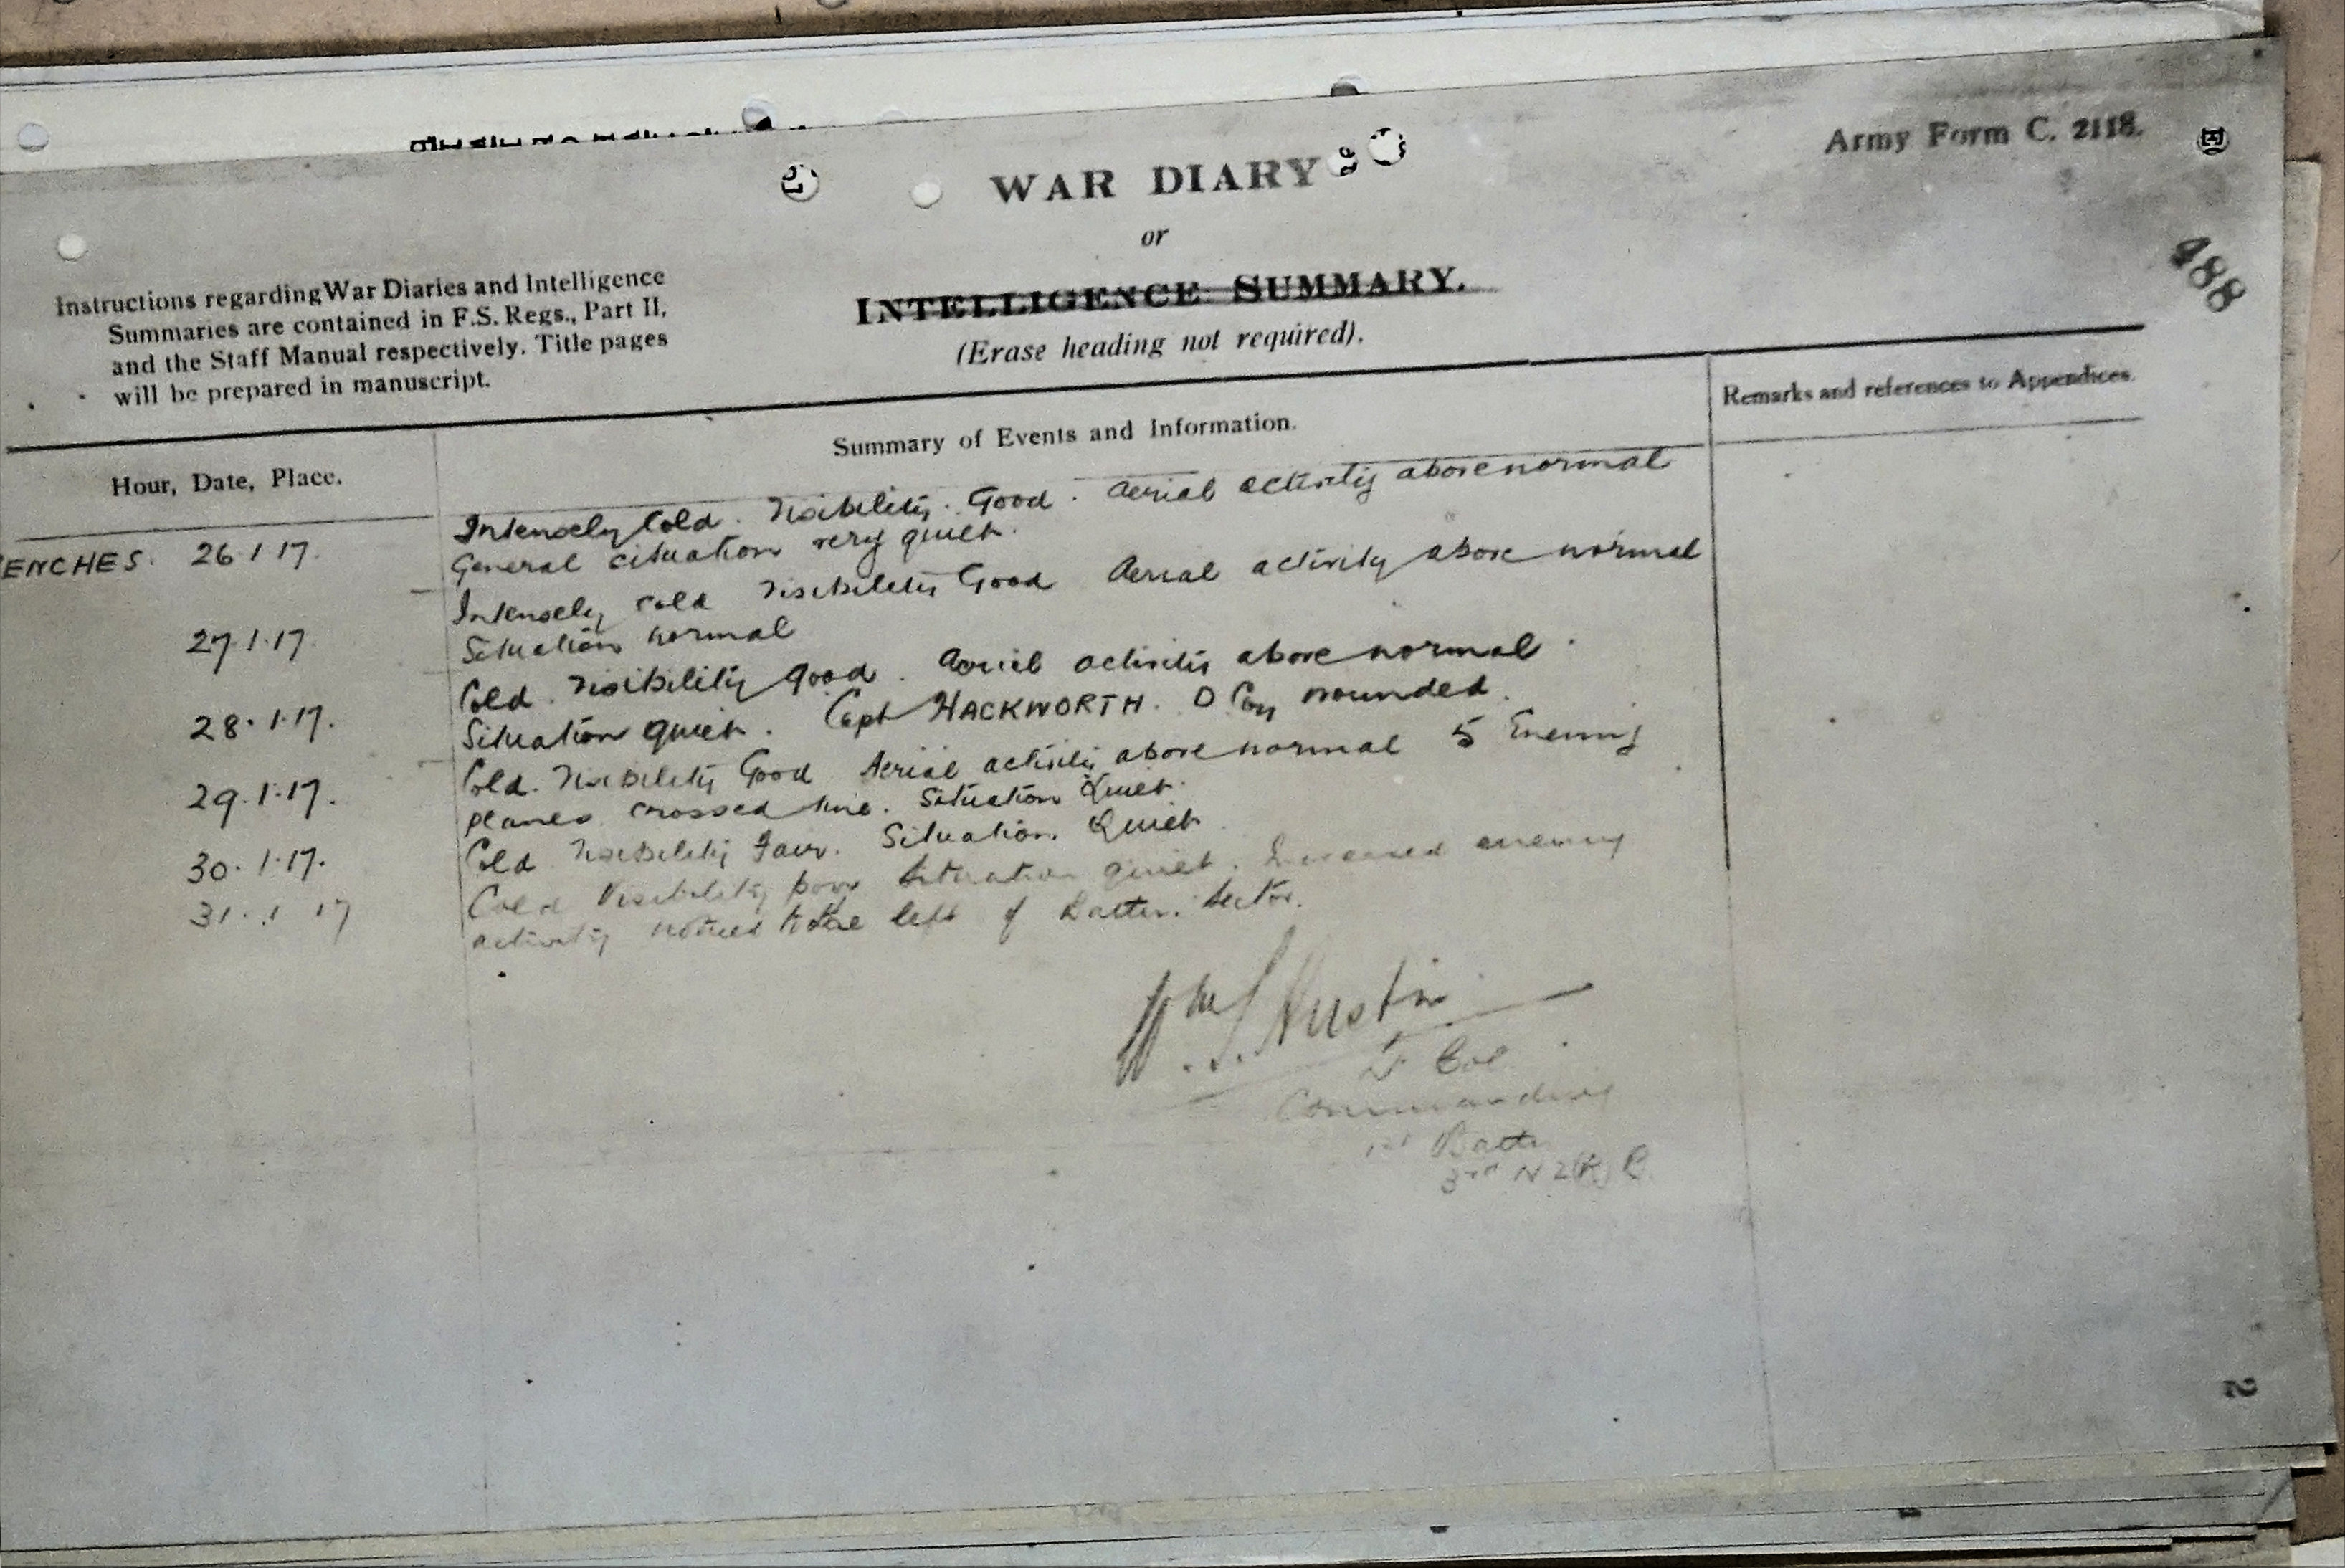 Army Form C. 2118.
488
WAR DIARY
or
INTELLIGENCE SUMMARY.
(Erase heading not required).
Instructions regarding War Diaries and Intelligence
Summaries are contained in F.S. Regs., Part II,
and the Staff Manual respectively. Title pages
will be prepared in manuscript.
Hour, Date, Place.
Summary of Events and Information.
Remarks and references to Appendices.
ENCHES. 26.1.17.
Intensely Cold. Visibility. Good. Aerial activity above normal
General situation very quiet.
27.1.17.
Intensely cold Visibility Good Aerial activity above normal
Situation normal
28.1.17.
Cold. Visibility good. Aerial activity above normal.
Situation quiet. Capt HACKWORTH. D Coy wounded.
29.1.17.
Cold. Visibility Good Aerial activity above normal 5 Enemy
planes crossed line. Situation Quiet.
30.1.17.
Cold Visibility Fair. Situation Quiet.
31.1.17
Cold Visibility poor Situation quiet. Increased enemy
activity noticed to the left of Battn. Sector.
Wm S. Austin
Lt Col
Commanding
1st Battn
3rd N Z (R) B
2